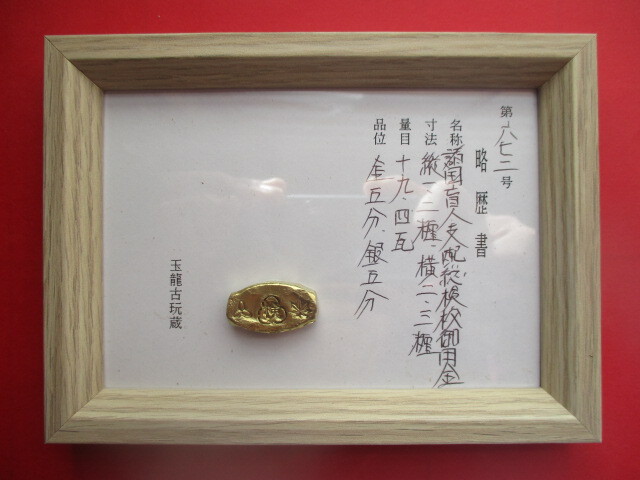 第六七二号
略歴書
名称 諸国盲人支配総検校御用金
寸法 縦一、二糎、横二、三糎
量目 十九、四瓦
品位 金五分、銀五分
玉龍古玩蔵